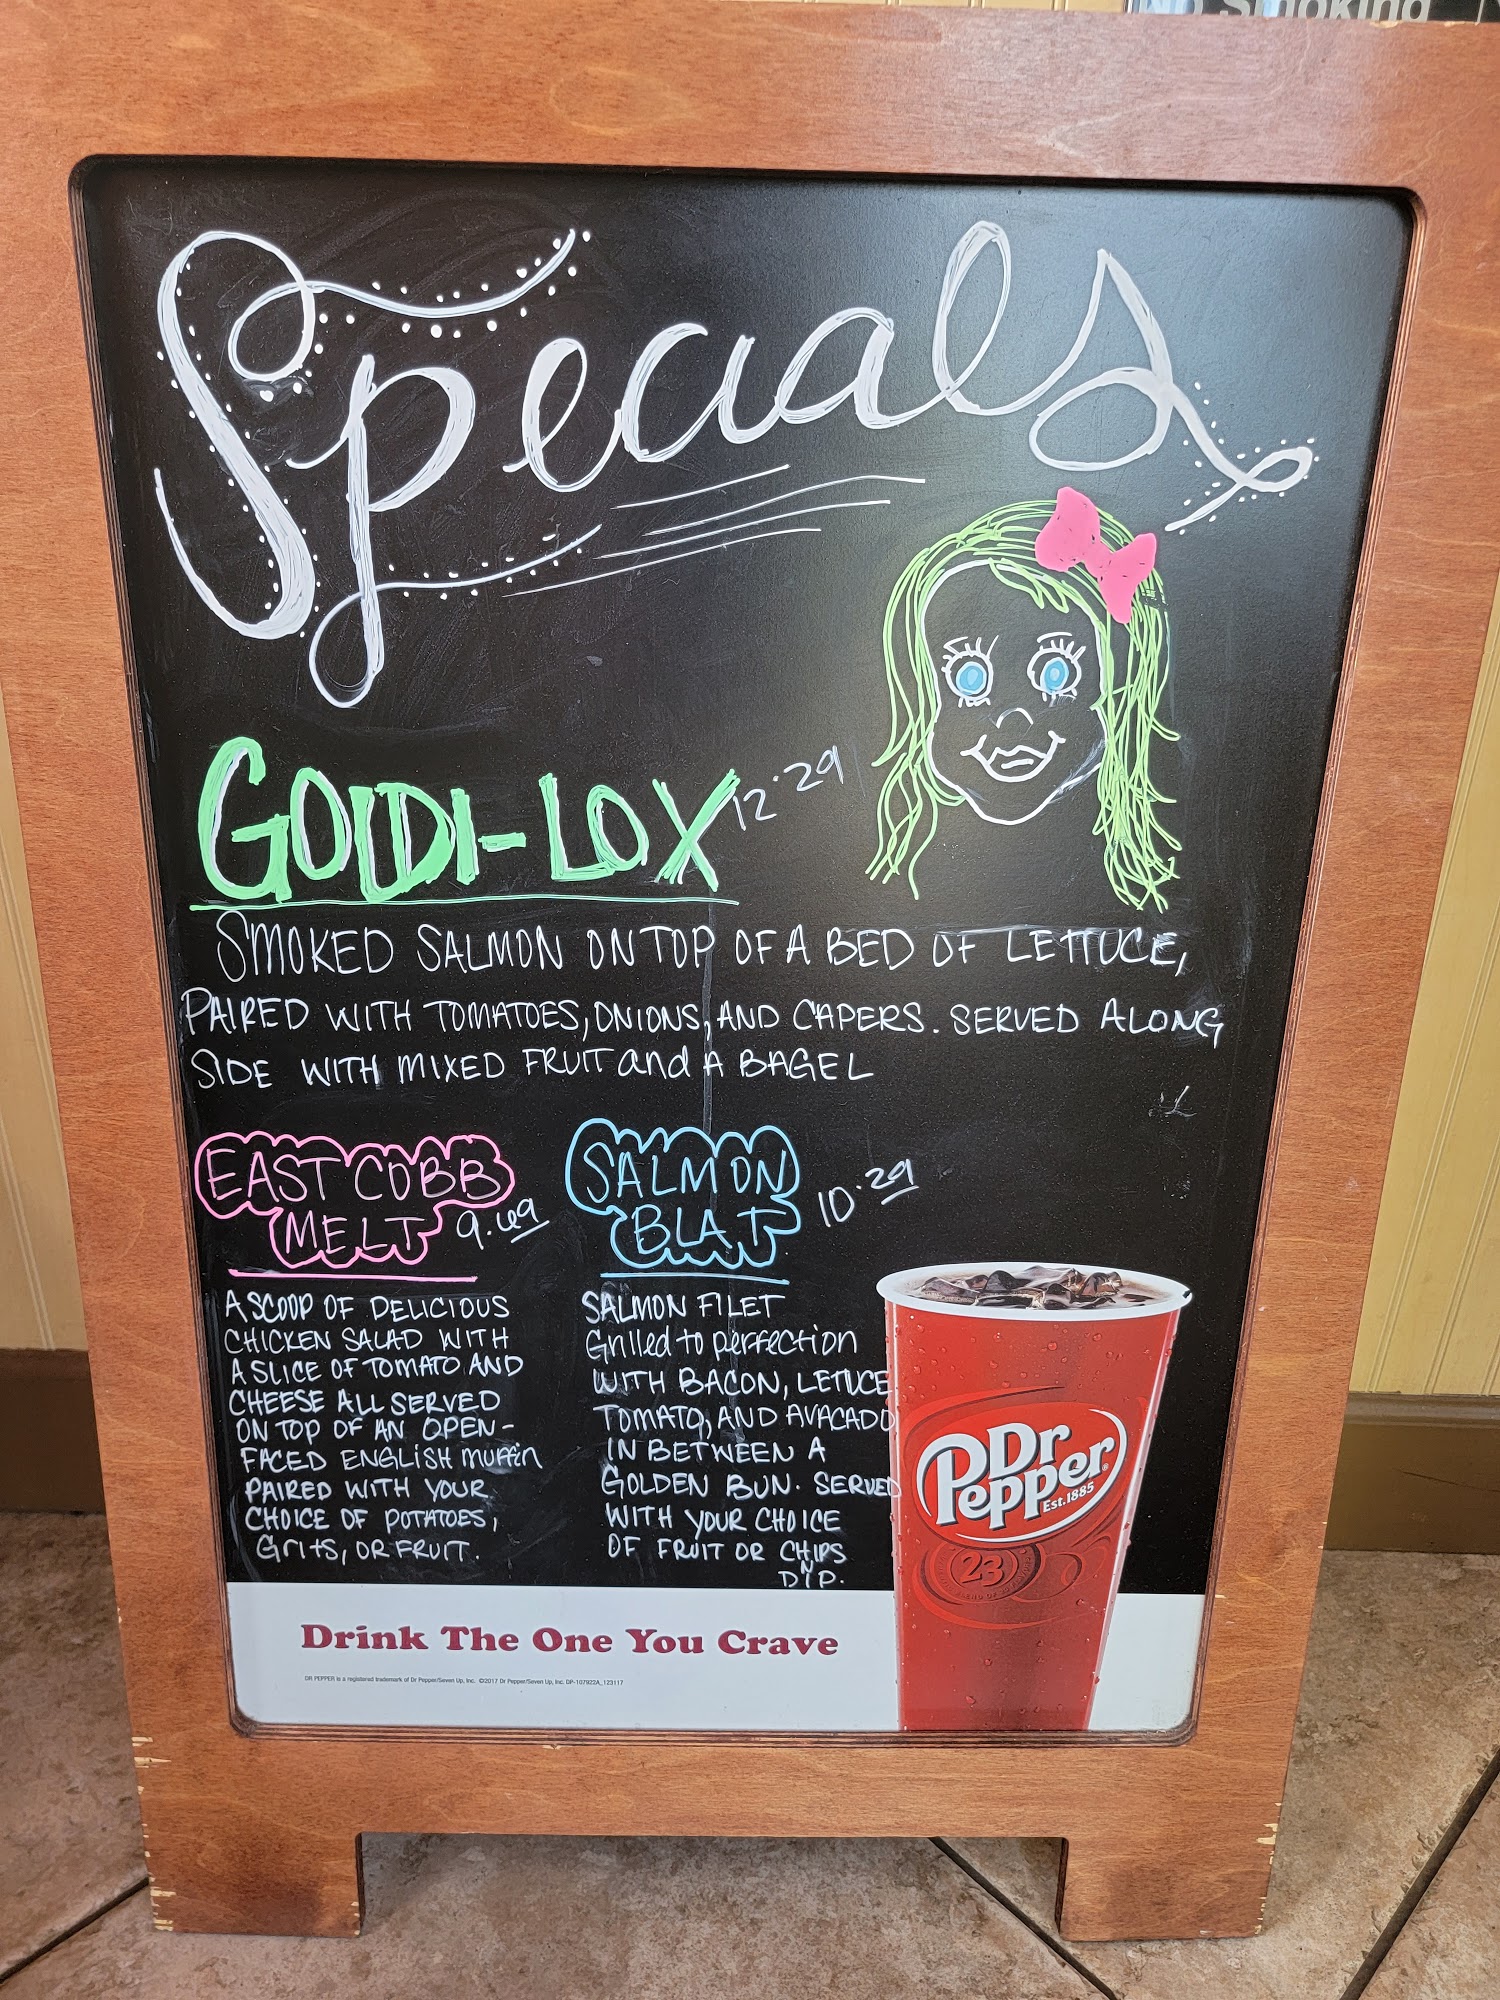 No Smoking
Specials
GOlDI-LOX 12.29
SMOKED SALMON ON TOP OF A BED OF LETTUCE,
PAIRED WITH TOMATOES, ONIONS, AND CAPERS. SERVED ALONG
SIDE WITH MIXED FRUIT and A BAGEL
EAST COBB
MELT 9.69
A SCOOP OF DELICIOUS
CHICKEN SALAD WITH
A SLICE OF TOMATO AND
CHEESE ALL SERVED
ON TOP OF AN OPEN-
FACED ENGLISH muffin
PAIRED WITH YOUR
CHOICE OF POTATOES,
Grits, OR FRUIT.
SALMON
BLAT 10.29
SALMON FILET
Grilled to perfection
WITH BACON, LETTUCE
TOMATO, AND AVACADO
IN BETWEEN A
GOLDEN BUN. SERVED
WITH YOUR CHOICE
OF FRUIT OR CHIPS
N
DIP.
Dr
Pepper
Est.1885
23
Drink The One You Crave
DR PEPPER is a registered trademark of Dr Pepper/Seven Up, Inc. ©2017 Dr Pepper/Seven Up, Inc. DP-107922A_123117